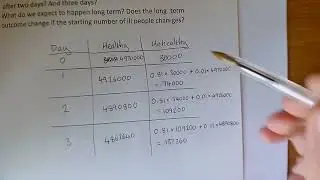 after two days? And three days?
What do we expect to happen long term? Does the long term
outcome change if the starting number of ill people changes?
Day Healthy Unhealthy
0 4970000 30000
1 4926000 0.81×30000 + 0.01×4970000
= 74000
2 4890800 0.81×74000 + 0.01×4926000
= 109200
3 4862640 0.81×109200 + 0.01×4890800
= 137360